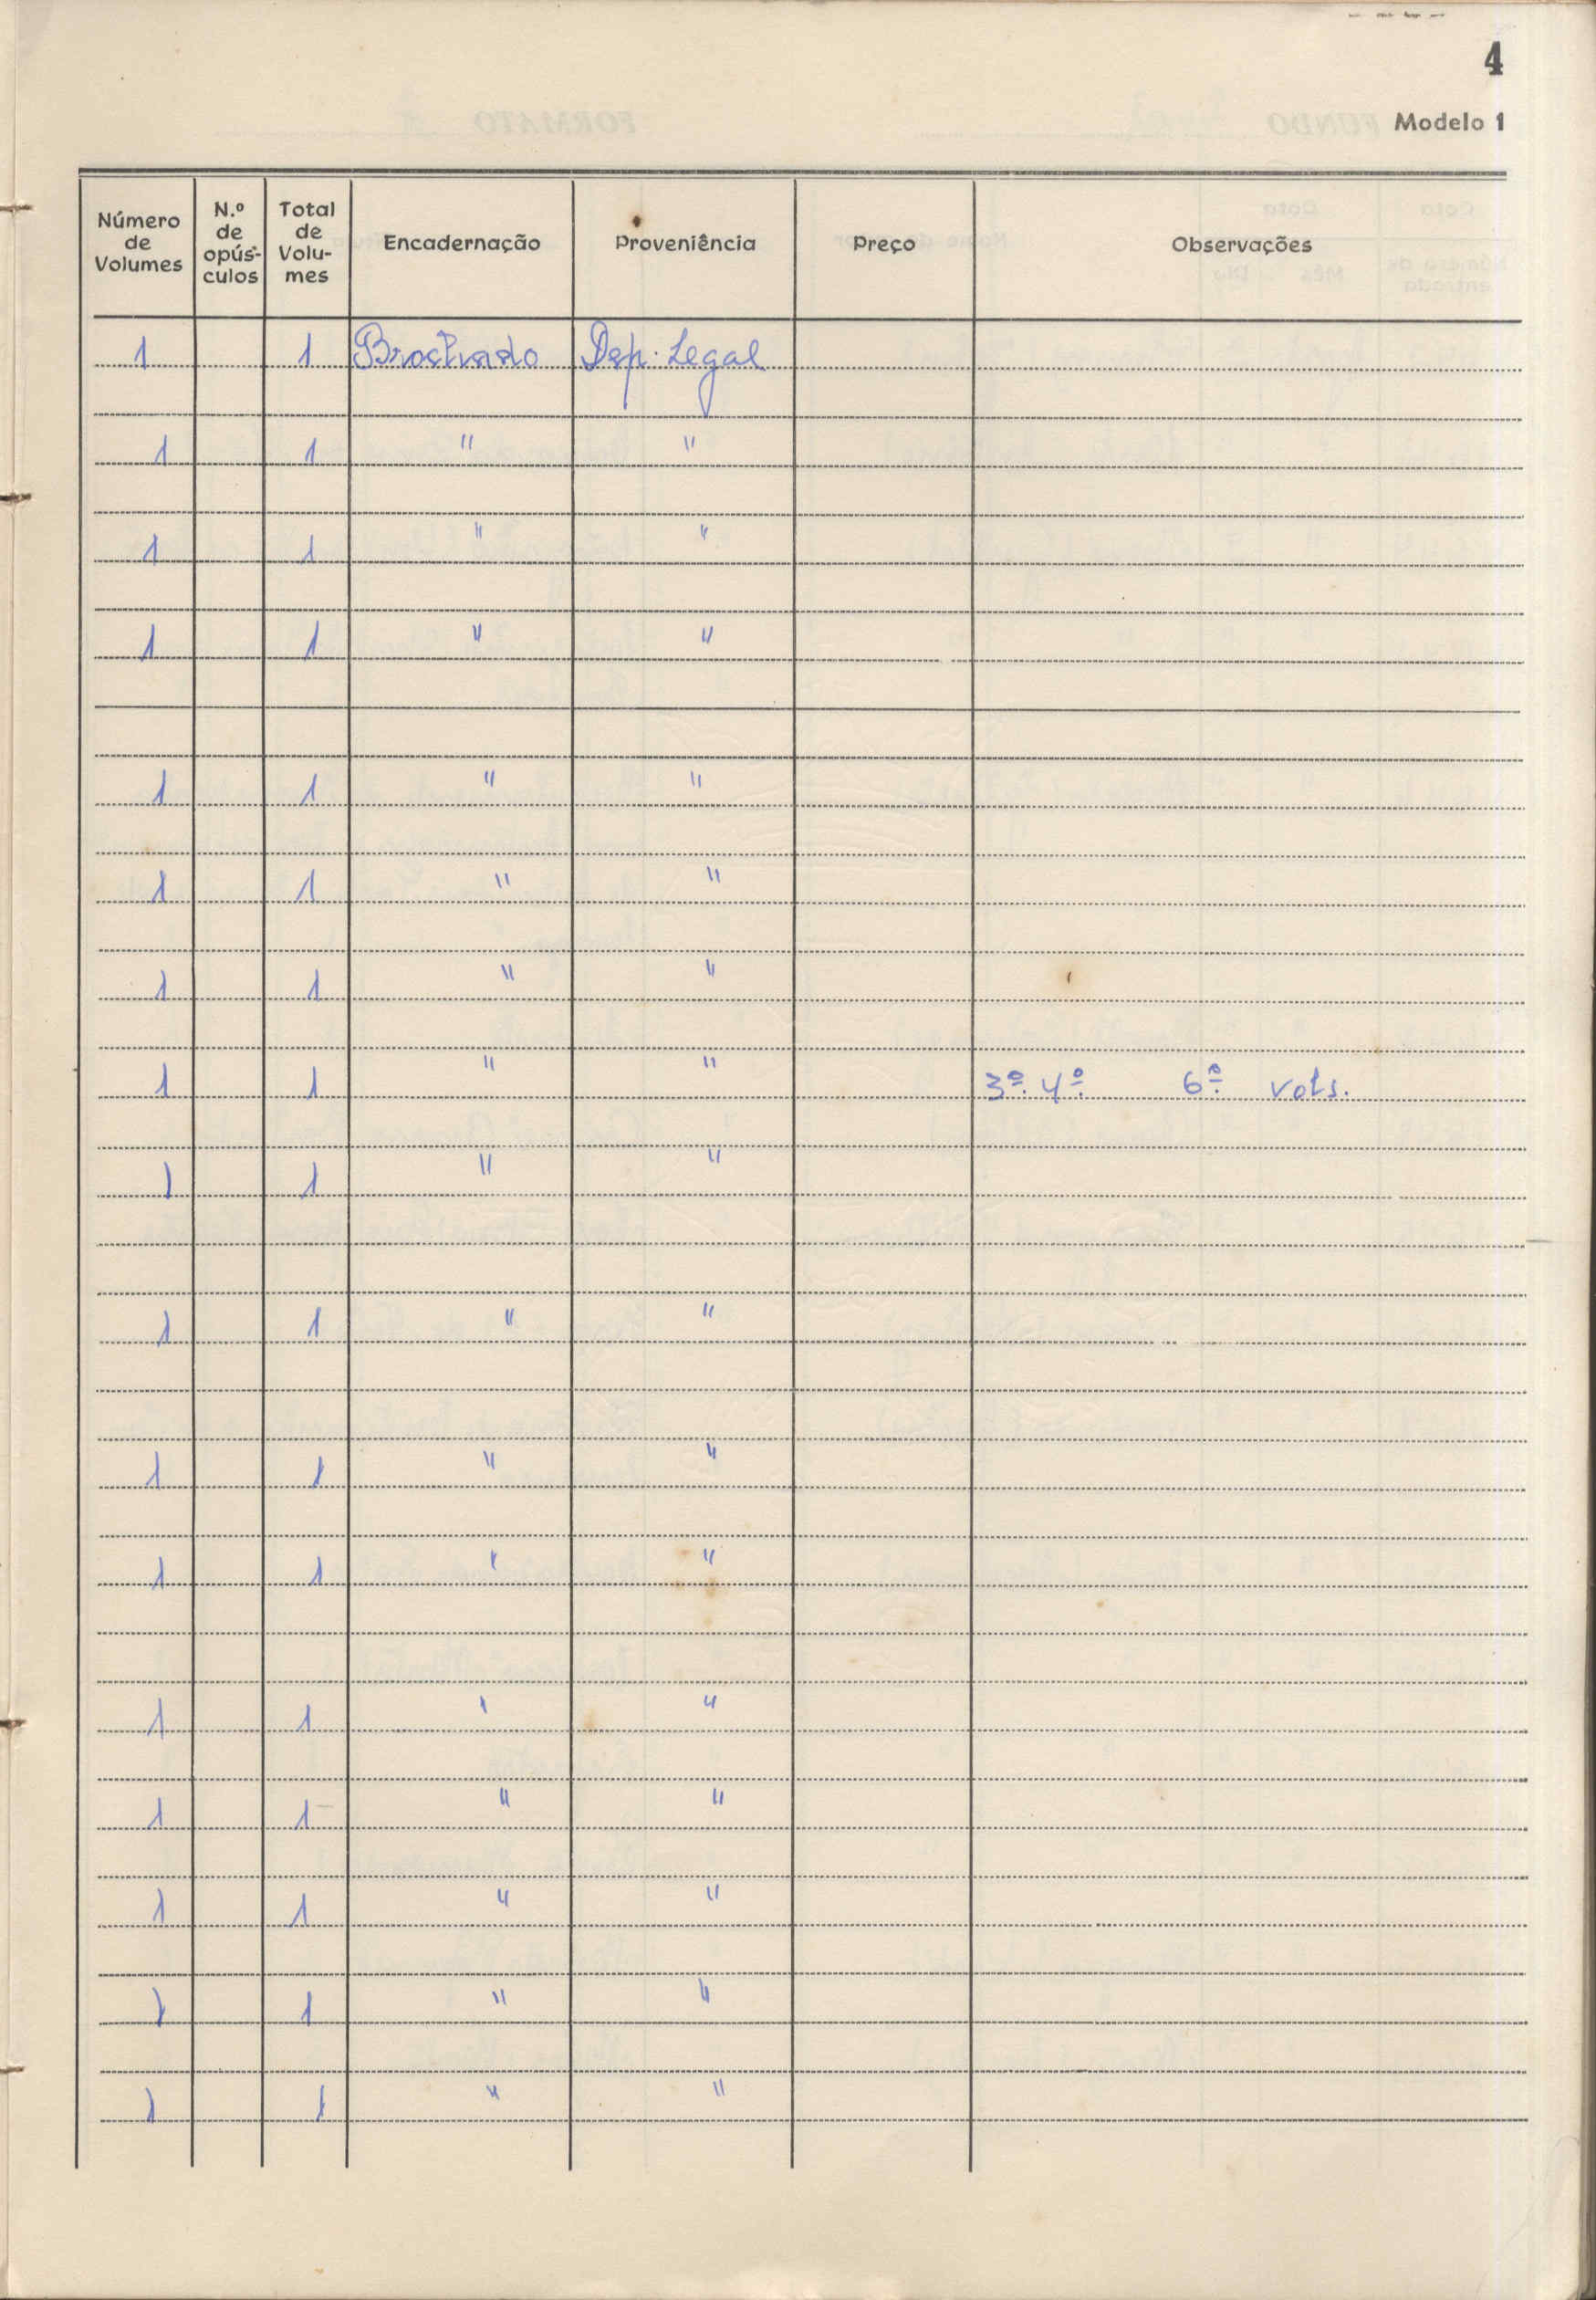 4
Modelo 1
Número de Volumes | N.º de opús-culos | Total de Volu-mes | Encadernação | Proveniência | Preço | Observações
1 | | 1 | Brochado | Dep. Legal
1 | | 1 | " | "
1 | | 1 | " | "
1 | | 1 | " | "
1 | | 1 | " | "
1 | | 1 | " | "
1 | | 1 | " | "
1 | | 1 | " | " | | 3º. 4º. 6º. vols.
1 | | 1 | " | "
1 | | 1 | " | "
1 | | 1 | " | "
1 | | 1 | ' | "
1 | | 1 | ' | "
1 | | 1 | " | "
1 | | 1 | " | "
1 | | 1 | " | "
1 | | 1 | " | "